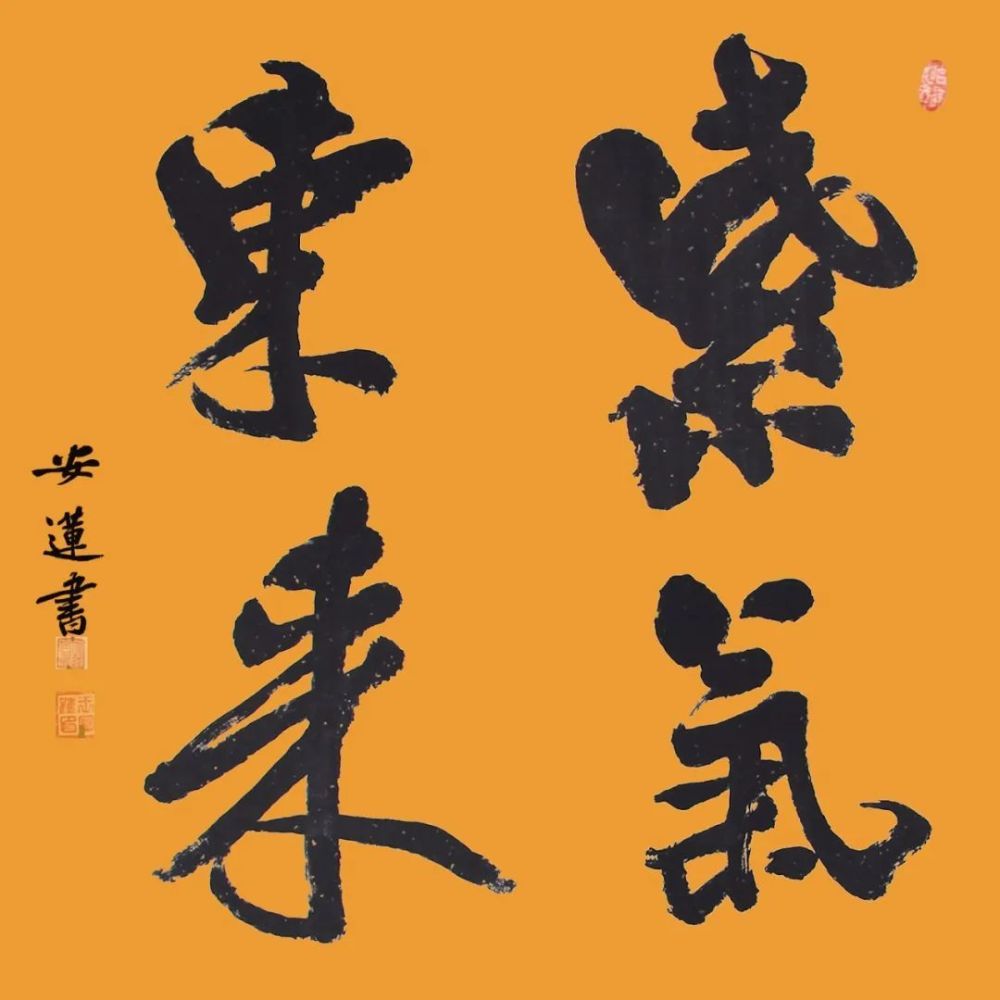 紫氣
東來
安蓮書